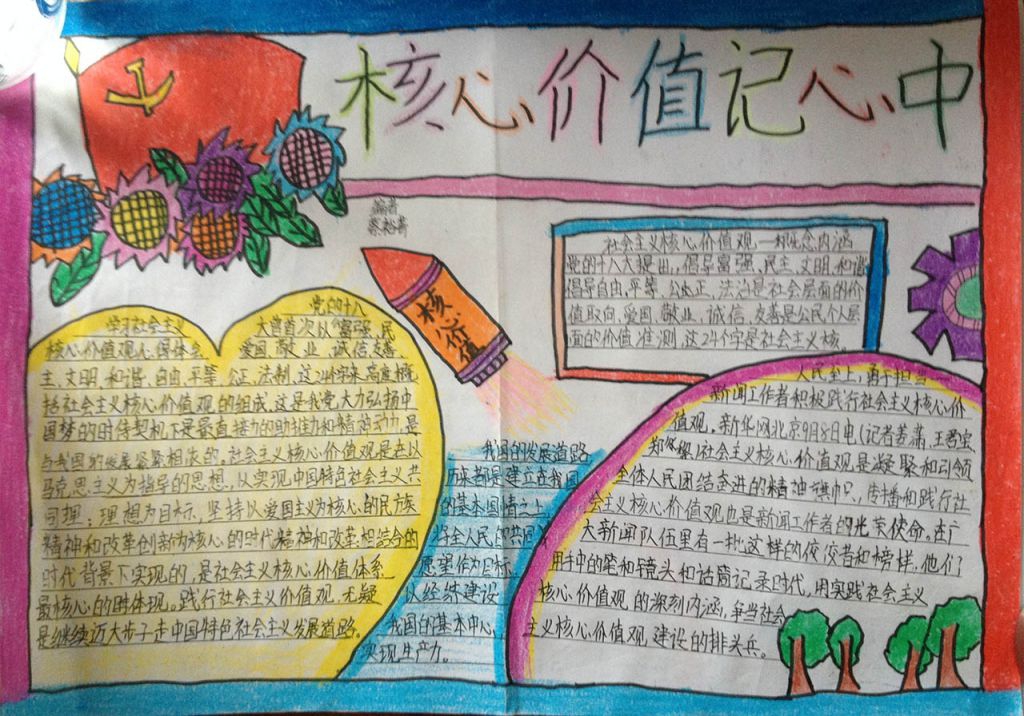 核心价值记心中
编者
蔡裕菁
核心价值
社会主义核心价值观,一种概念内涵
党的十八大提出,倡导富强、民主、文明、和谐
倡导自由、平等、公正、法治是社会层面的价
值取向,爱国、敬业、诚信、友善是公民个人层
面的价值准则,这24个字是社会主义核
学习社会主义
核心价值观心得体会
党的十八
大首次以“富强、民
主、文明、和谐、自由、平等、公正、法制、
爱国、敬业、诚信、友善、
这24个字来高度概
括社会主义核心价值观的组成。这是我党大力弘扬中
国梦的时代契机下是最直接力的助推力和精神动力,是
与我国的发展紧紧相依的,社会主义核心价值观是在以
马克思主义为指导的思想,以实现中国特色社会主义共
同理;理想为目标,坚持以爱国主义为核心的民族
精神和改革创新为核心的时代精神和改革相结合的
时代背景下实现的,是社会主义核心价值体系
最核心的体现。践行社会主义价值观,无疑
是继续迈大步子走中国特色社会主义发展道路。
我国的发展道路
历来都是建立在我国
的基本国情之上
全人民的共同
愿望作为目标,
以经续建设
我国的基本中心,
实现生产力。
人民至上,勇于担当
新闻工作者积极践行社会主义核心价
值观,新华网北京9月8日电(记者姜潇、王君宝
社会主义核心价值观是凝聚和引领
全体人民团结奋进的精神旗帜,传播和践行社
会主义核心价值观也是新闻工作者的光荣使命。在广
大新闻队伍里有一批这样的佼佼者和榜样,他们
用手中的笔和镜头和话筒记录时代,用实践社会主义
核心价值观的深刻内涵,争当社会
主义核心价值观建设的排头兵。